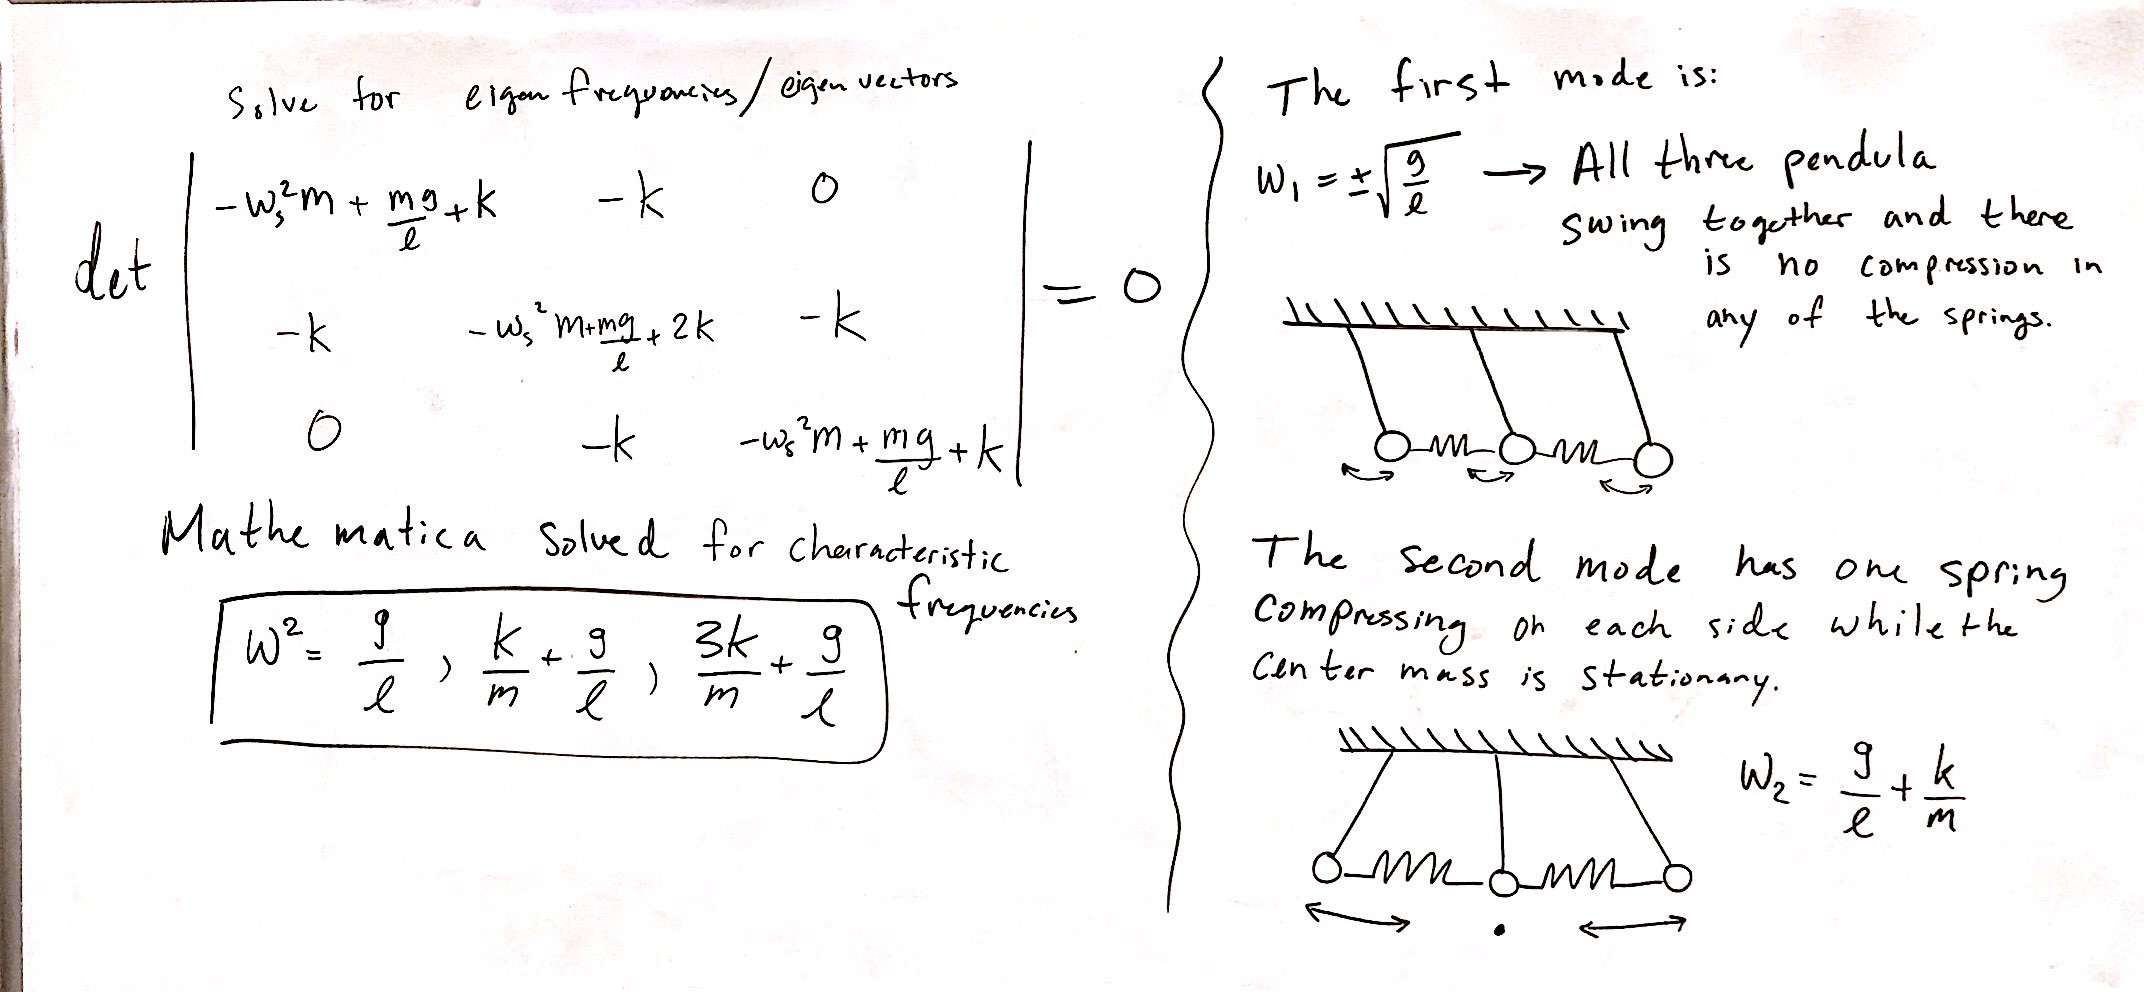 Solve for eigen frequencies/eigen vectors
det | -ws²m + mg/l + k   -k   0 |
| -k   -ws²m + mg/l + 2k   -k | = 0
| 0   -k   -ws²m + mg/l + k |
Mathematica solved for characteristic
frequencies
w² = g/l , k/m + g/l , 3k/m + g/l
The first mode is:
w₁ = ±√(g/l) → All three pendula
swing together and there
is no compression in
any of the springs.
The second mode has one spring
compressing on each side while the
center mass is stationary.
w₂ = g/l + k/m